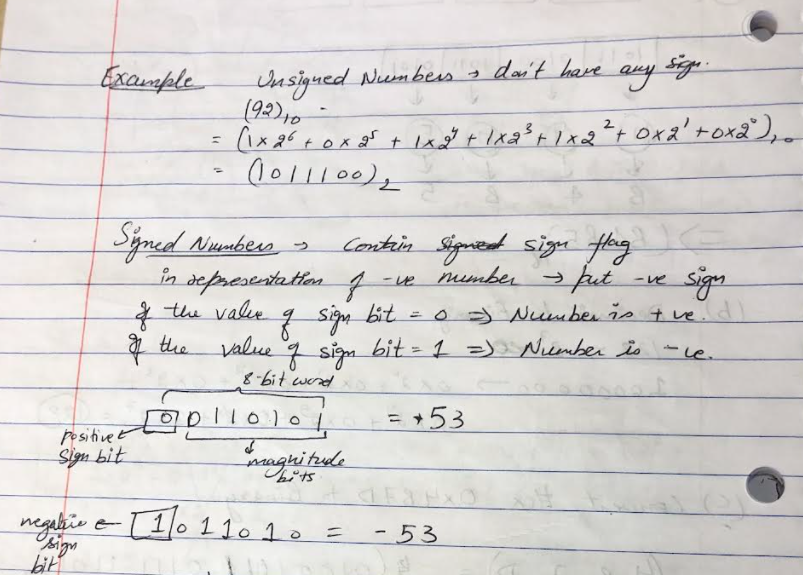 Example Unsigned Numbers → don't have any sign.
(92)₁₀
= (1×2⁶ + 0×2⁵ + 1×2⁴ + 1×2³ + 1×2² + 0×2¹ + 0×2⁰)₁₀
= (1011100)₂
Signed Numbers → Contain signed sign flag
in representation of -ve number → put -ve sign
If the value of sign bit = 0 => Number is +ve.
If the value of sign bit = 1 => Number is -ve.
8-bit word
0 0110101 = +53
positive sign bit
magnitude bits
negative sign bit ← 1 011010 = -53